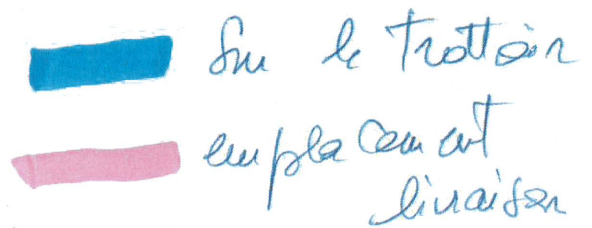 Sur le trottoir
emplacement
livraison